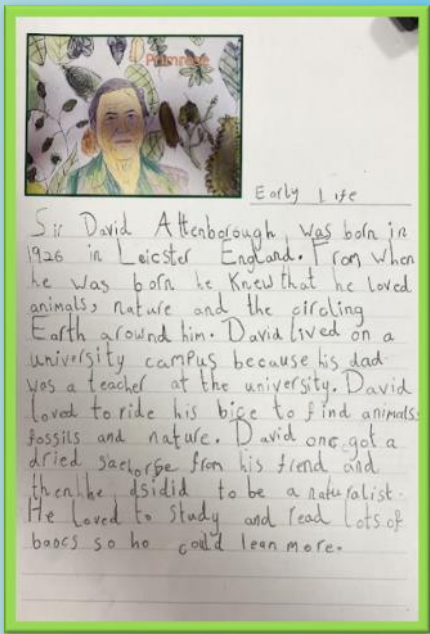 Primrose
Early Life
Sir David Attenborough was born in
1926 in Leicster England. From when
he was born he knew that he loved
animals, nature and the circling
Earth arownd him. David lived on a
university campus because his dad
was a teacher at the university. David
loved to ride his bice to find animals,
fossils and nature. David onc got a
dried sachorse from his frend and
then he dsidid to be a naturalist.
He Loved to study and read Lots of
baocs so ho could lean more.